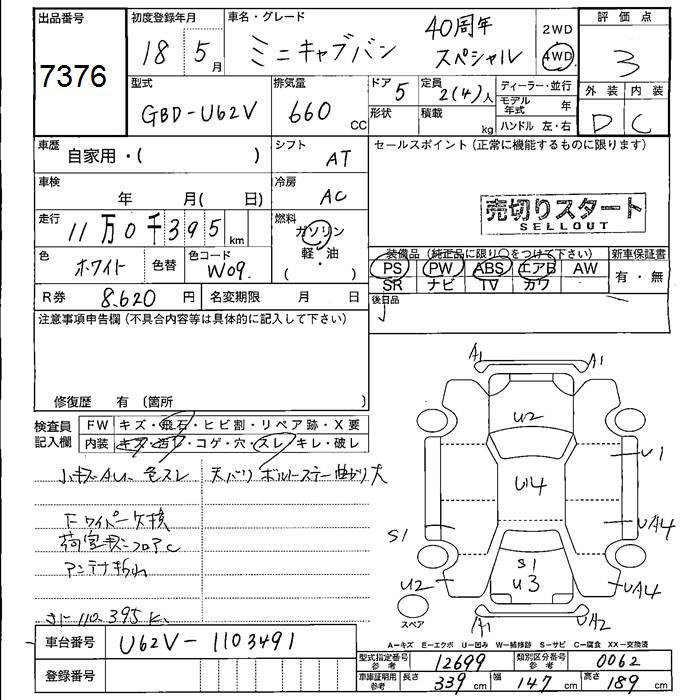 出品番号
7376
初度登録年月
18 5月
車名・グレード
ミニキャブバン 40周年
スペシャル
2WD
4WD
評価点
3
外装 内装
D C
型式
GBD-U62V
排気量
660 cc
ドア 5
形状
定員 2(4)人
積載 kg
ディーラー・並行
モデル年式 年
ハンドル 左・右
車歴
自家用・( )
シフト
AT
セールスポイント(正常に機能するものに限ります)
売切りスタート
SELLOUT
車検
年 月( 日)
冷房
AC
走行
11万0千395km
燃料
ガソリン
軽・油
( )
色
ホワイト
色替
色コード
W09.
装備品(純正品に限り○をつけて下さい)
PS PW ABS エアB AW
SR ナビ TV カワ
新車保証書
有・無
R券 8,620円
名変期限 月 日
後日品
注意事項申告欄(不具合内容等は具体的に記入して下さい)
修復歴 有(箇所 )
検査員
記入欄
FW キズ・飛石・ヒビ割・リペア跡・X要
内装 キズ・汚レ・コゲ・穴・スレ・キレ・破レ
小キズAU、色スレ
天バリ
Fワイパー欠損
荷室
フロアC
アンテナ折れ
110,395K
A1 A1
U2
U1
U14
S1
UA4
S1
U3
U2
UA4
A1
UA2
スペア
A-キズ E-エクボ U-凹み W-補修跡 S-サビ C-腐食 XX-交換済
車台番号
U62V-1103491
登録番号
型式指定番号
参考
12699
類別区分番号
参考
0062
車庫証明用
参考
長さ 339cm
幅 147cm
高さ 189cm